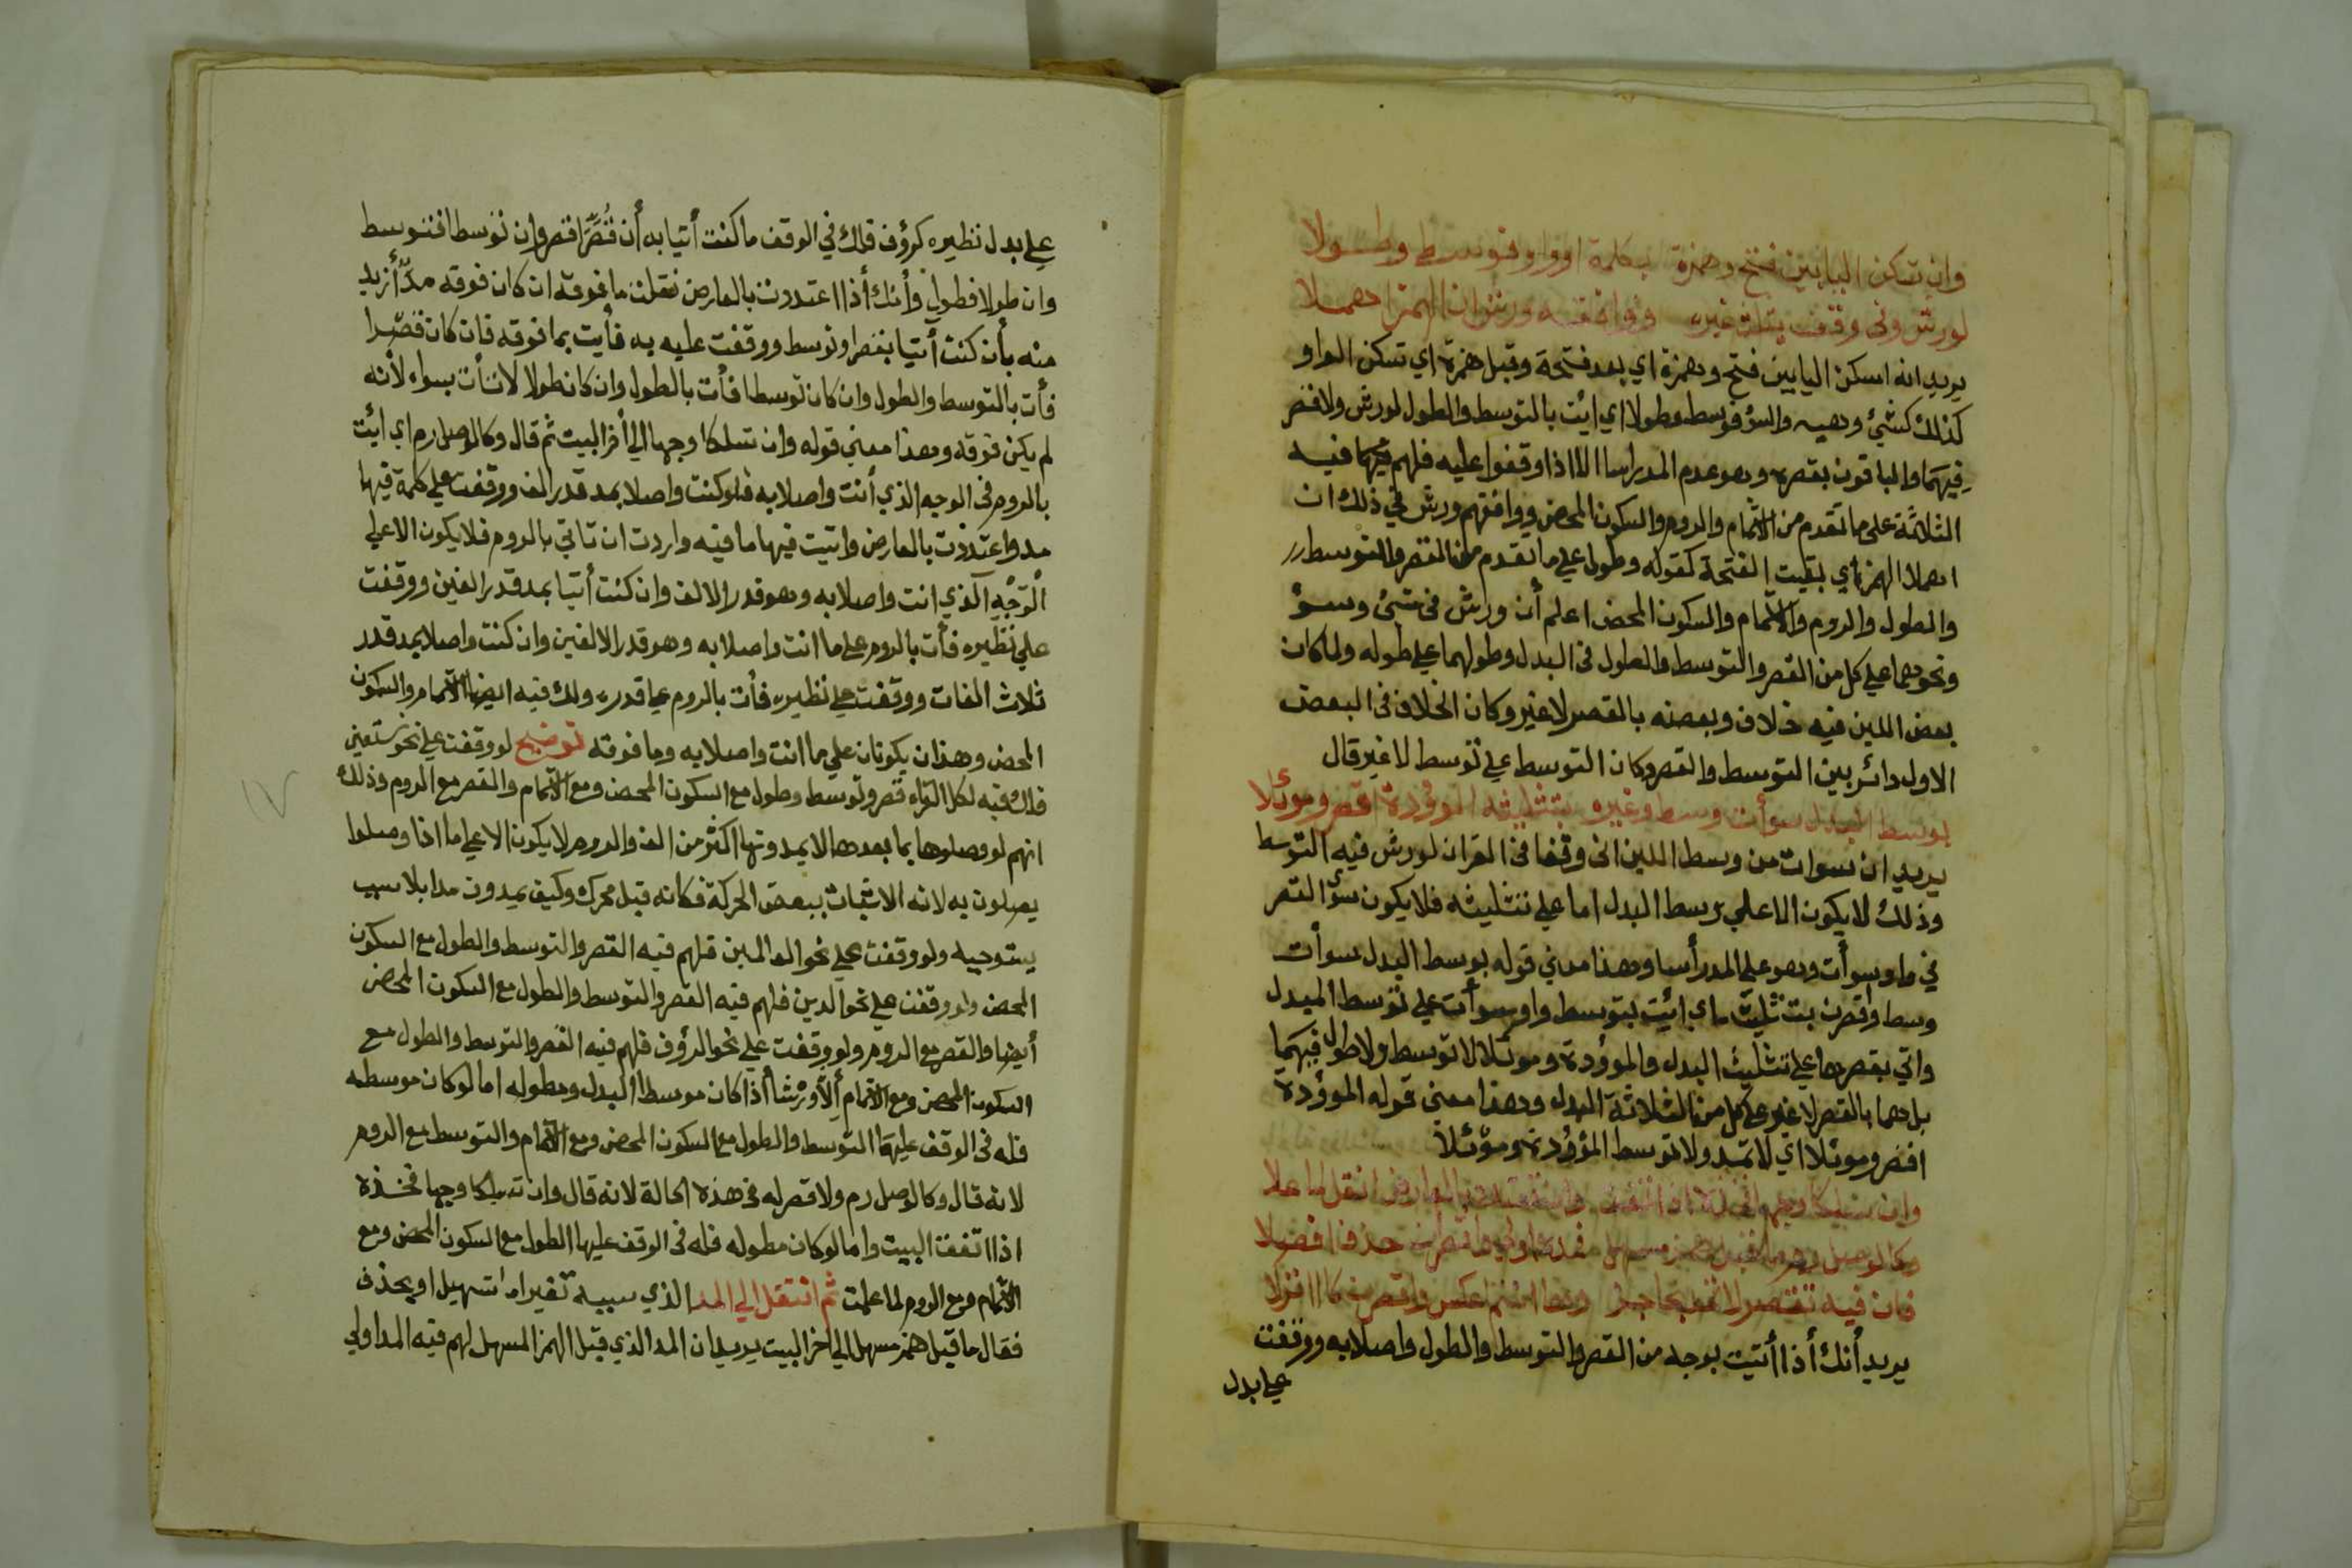 وان تسكن اليا بين فتح وهمزة بكلمة او واو فوسط وطولا
لورش وفي وقف يثلث غيره ووافقه ورش ان الهمز اهملا
يريد انه اسكن اليا بين فتح وهمزة اي بعد فتحة وقبل همزة اي تسكن الواو
كذلك كشيئ وهيه والسؤ فوسط وطولا اي ائت بالتوسط والطول لورش ولا قصر
فيهما والباقون بقصره وهو عدم المد راسا الا اذا وقفوا عليه فلهم فيهما فيه
الثلاثة على ما تقدم من الاشمام والروم والسكون المحض ووافقهم ورش في ذلك ان
اهملا الهمز اي بقيت الفتحة كقوله وطول علي ما تقدم من القصر والتوسط
والطول والروم والاشمام والسكون المحض اعلم أن ورش في شيئ وسوؤ
ونحوهما علي كل من القصر والتوسط والطول في البدل وطولهما علي طوله ولما كان
بعض اللين فيه خلاف وبعضه بالقصر لا غير وكان الخلاف في البعض
الاول دائر بين التوسط والقصر وكان التوسط علي توسط لا غير قال
بوسط البدل سوأت وسط وغيره بتثليثه الموؤدة اقصر وموئلا
يريد ان سوات من وسط اللين اني وقفا في القران لورش فيه التوسط
وذلك لا يكون الا علي وسط البدل اما علي تثليثه فلا يكون سوى القصر
في واو سوأت وهو علم المد رأسا وهذا معني قوله بوسط البدل سوأت
وسط واقصرن بتثليث اي ائيت بتوسط واو سوأت علي توسط البدل
واتي بقصرها علي تثليث البدل والموؤدة وموئلا لا توسيط ولا طول فيهما
بل هما بالقصر لا غير علي كل من الثلاثة البدل وهذا معني قوله الموؤدة
اقصر وموئلا اي لا تمد ولا توسط الموؤدة وموئلا
وان تسلكا وجها فخذه اذا اتفقت وان تعتدد بالعارض انقل لما علا
وكالوصل رم ما قبل همز مسهل فمده اولي واقصرن حذفا افضلا
فان فيه تقتصر
يريد أنك أذا أتيت بوجه من القصر والتوسط والطول واصلا به ووقفت
علي بدل
علي بدل نظيره كرؤف فلك في الوقف ما كنت أتيا به أن قُصِّرَا فقصر وان توسط افتوسط
وان طولا فطول وأنك أذا اعتددت بالعارض نقلت ما فوقه ان كان فوقه مدّ أزيد
منه بأن كنت أتيا بقصر او توسط ووقفت عليه به فأيت بما فوقه فان كان قصرا
فأت بالتوسط والطول وان كان توسطا فأت بالطول وان كان طولا لا تأت بسواء لأنه
لم يكن فوقه وهذا معني قوله وان تسلكا وجها الي أخر البيت ثم قال وكالوصل رم اي أيت
بالروم في الوجه الذي أنت واصلا به فلو كنت واصلا بمد قدر الف ووقفت علي كلمة فيها
مد واعتددت بالعارض واتيت فيها ما فيه واردت ان تاتي بالروم فلا يكون الا علي
الوَجْهِ الذي انت واصلا به وهو قدر الالف وان كنت أتيا بمد قدر الفين ووقفت
علي نظيره فأت بالروم علي ما انت واصلا به وهو قدر الالفين وان كنت واصلا بمد قدر
ثلاث الفات ووقفت علي نظيره فأت بالروم علي قدره ولك فيه ايضا الاشمام والسكون
المحض وهذان يكونان علي ما انت واصلا به وما فوقه توضيح لو وقفت علي نحو نستعين
فلك فيه لكل القراء قصر وتوسط وطول مع السكون المحض ومع الاشمام والقصر مع الروم وذلك
انهم لو وصلوها بما بعدها لا يمدونها اكثر من الف والروم لا يكون الا علي ما اذا وصلوا
يصلون به لانه الاتيان ببعض الحركة فكانه قبل محرك وكيف يمدون مدا بلا سبب
يستوجبه ولو وقفت علي نحو العالمين فلهم فيه القصر والتوسط والطول مع السكون
المحض ولو وقفت علي نحو الدين فلهم فيه القصر والتوسط والطول مع السكون المحض
أيضا والقصر مع الروم ولو وقفت علي نحو الرؤف فلهم فيه القصر والتوسط والطول مع
السكون المحض ومع الاشمام ألاّ ورْشا أذا كان موسط البدل ومطوله اما لو كان موسطه
فله في الوقف عليها التوسط والطول مع السكون المحض ومع الاشمام والتوسط مع الروم
لانه قال وكالوصل رم ولا قصر له في هذه الحالة لانه قال وان تسلكا وجها فخذه
اذا اتفقت البيت واما لو كان مطوله فله في الوقف عليها الطول مع السكون المحض ومع
الاشمام ومع الروم لما علمت ثم انتقل الي المد الذي سببه تغير اما تسهيل او بحذف
فقال ما قبل همز مسهل الي اخر البيت يريد ان المد الذي قبل الهمز المسهل لهم فيه المد اولي